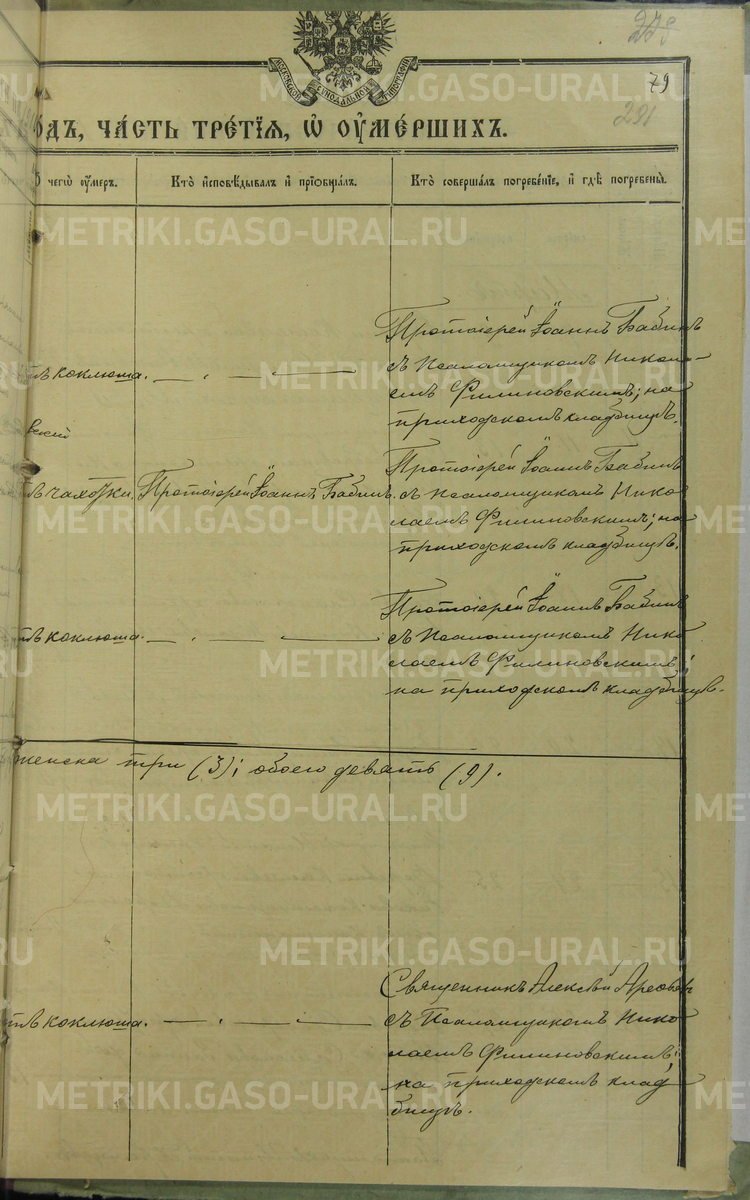 79
281
МОСКОВСКОЙ СѴНОДАЛЬНОЙ ТИПОГРАФІИ
ГОДЪ, ЧА́СТЬ ТРЕ́ТІѦ, Ѡ҆ ОУ҆МЕ́РШИХЪ.
Ѿ чегѡ̀ оу҆́меръ.
Кто̀ и҆сповѣ́дывалъ и҆ прїѡбща́лъ.
Кто̀ соверша́лъ погребе́нїе, и҆ гдѣ̀ погребены̀.
METRIKI.GASO-URAL.RU
Протоіерей Іоаннъ Бабинъ
съ Псаломщикомъ Никола-
емъ Филиновскимъ; на
приходскомъ кладбищѣ.
тъ коклюша.
вской
тъ чахотки.
Протоіерей Іоаннъ Бабинъ.
Протоіерей Іоаннъ Бабинъ
съ Псаломщикомъ Нико
лаемъ Филиновскимъ; на
приходскомъ кладбищѣ.
тъ коклюша.
Протоіерей Іоаннъ Бабинъ
съ Псаломщикомъ Нико
лаемъ Филиновскимъ;
на приходскомъ кладбищѣ.
женска три (3); обоего девять (9).
тъ коклюша.
Священникъ Алексѣй
съ Псаломщикомъ Нико
лаемъ Филиновскимъ;
на приходскомъ клад
бищѣ.